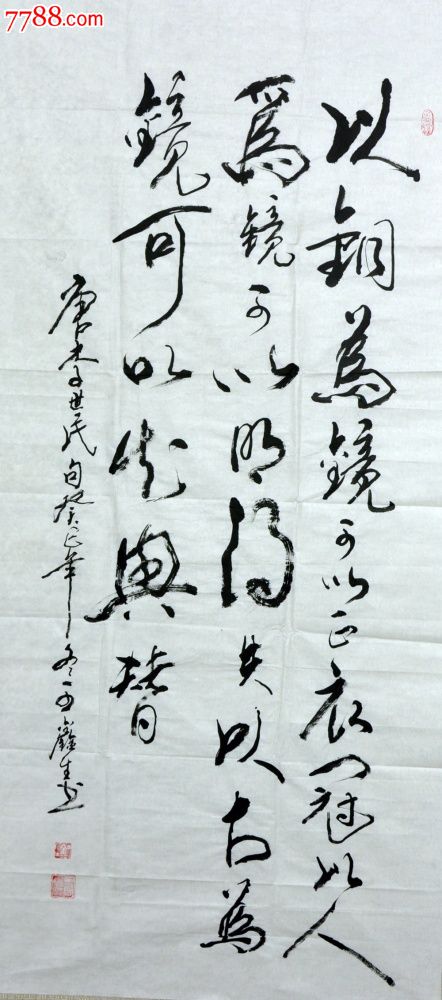 7788.com
以銅爲鏡可以正衣冠以人
爲鏡可以明得失以古爲
鏡可以知興替
唐李世民句癸巳年冬王鑫生书